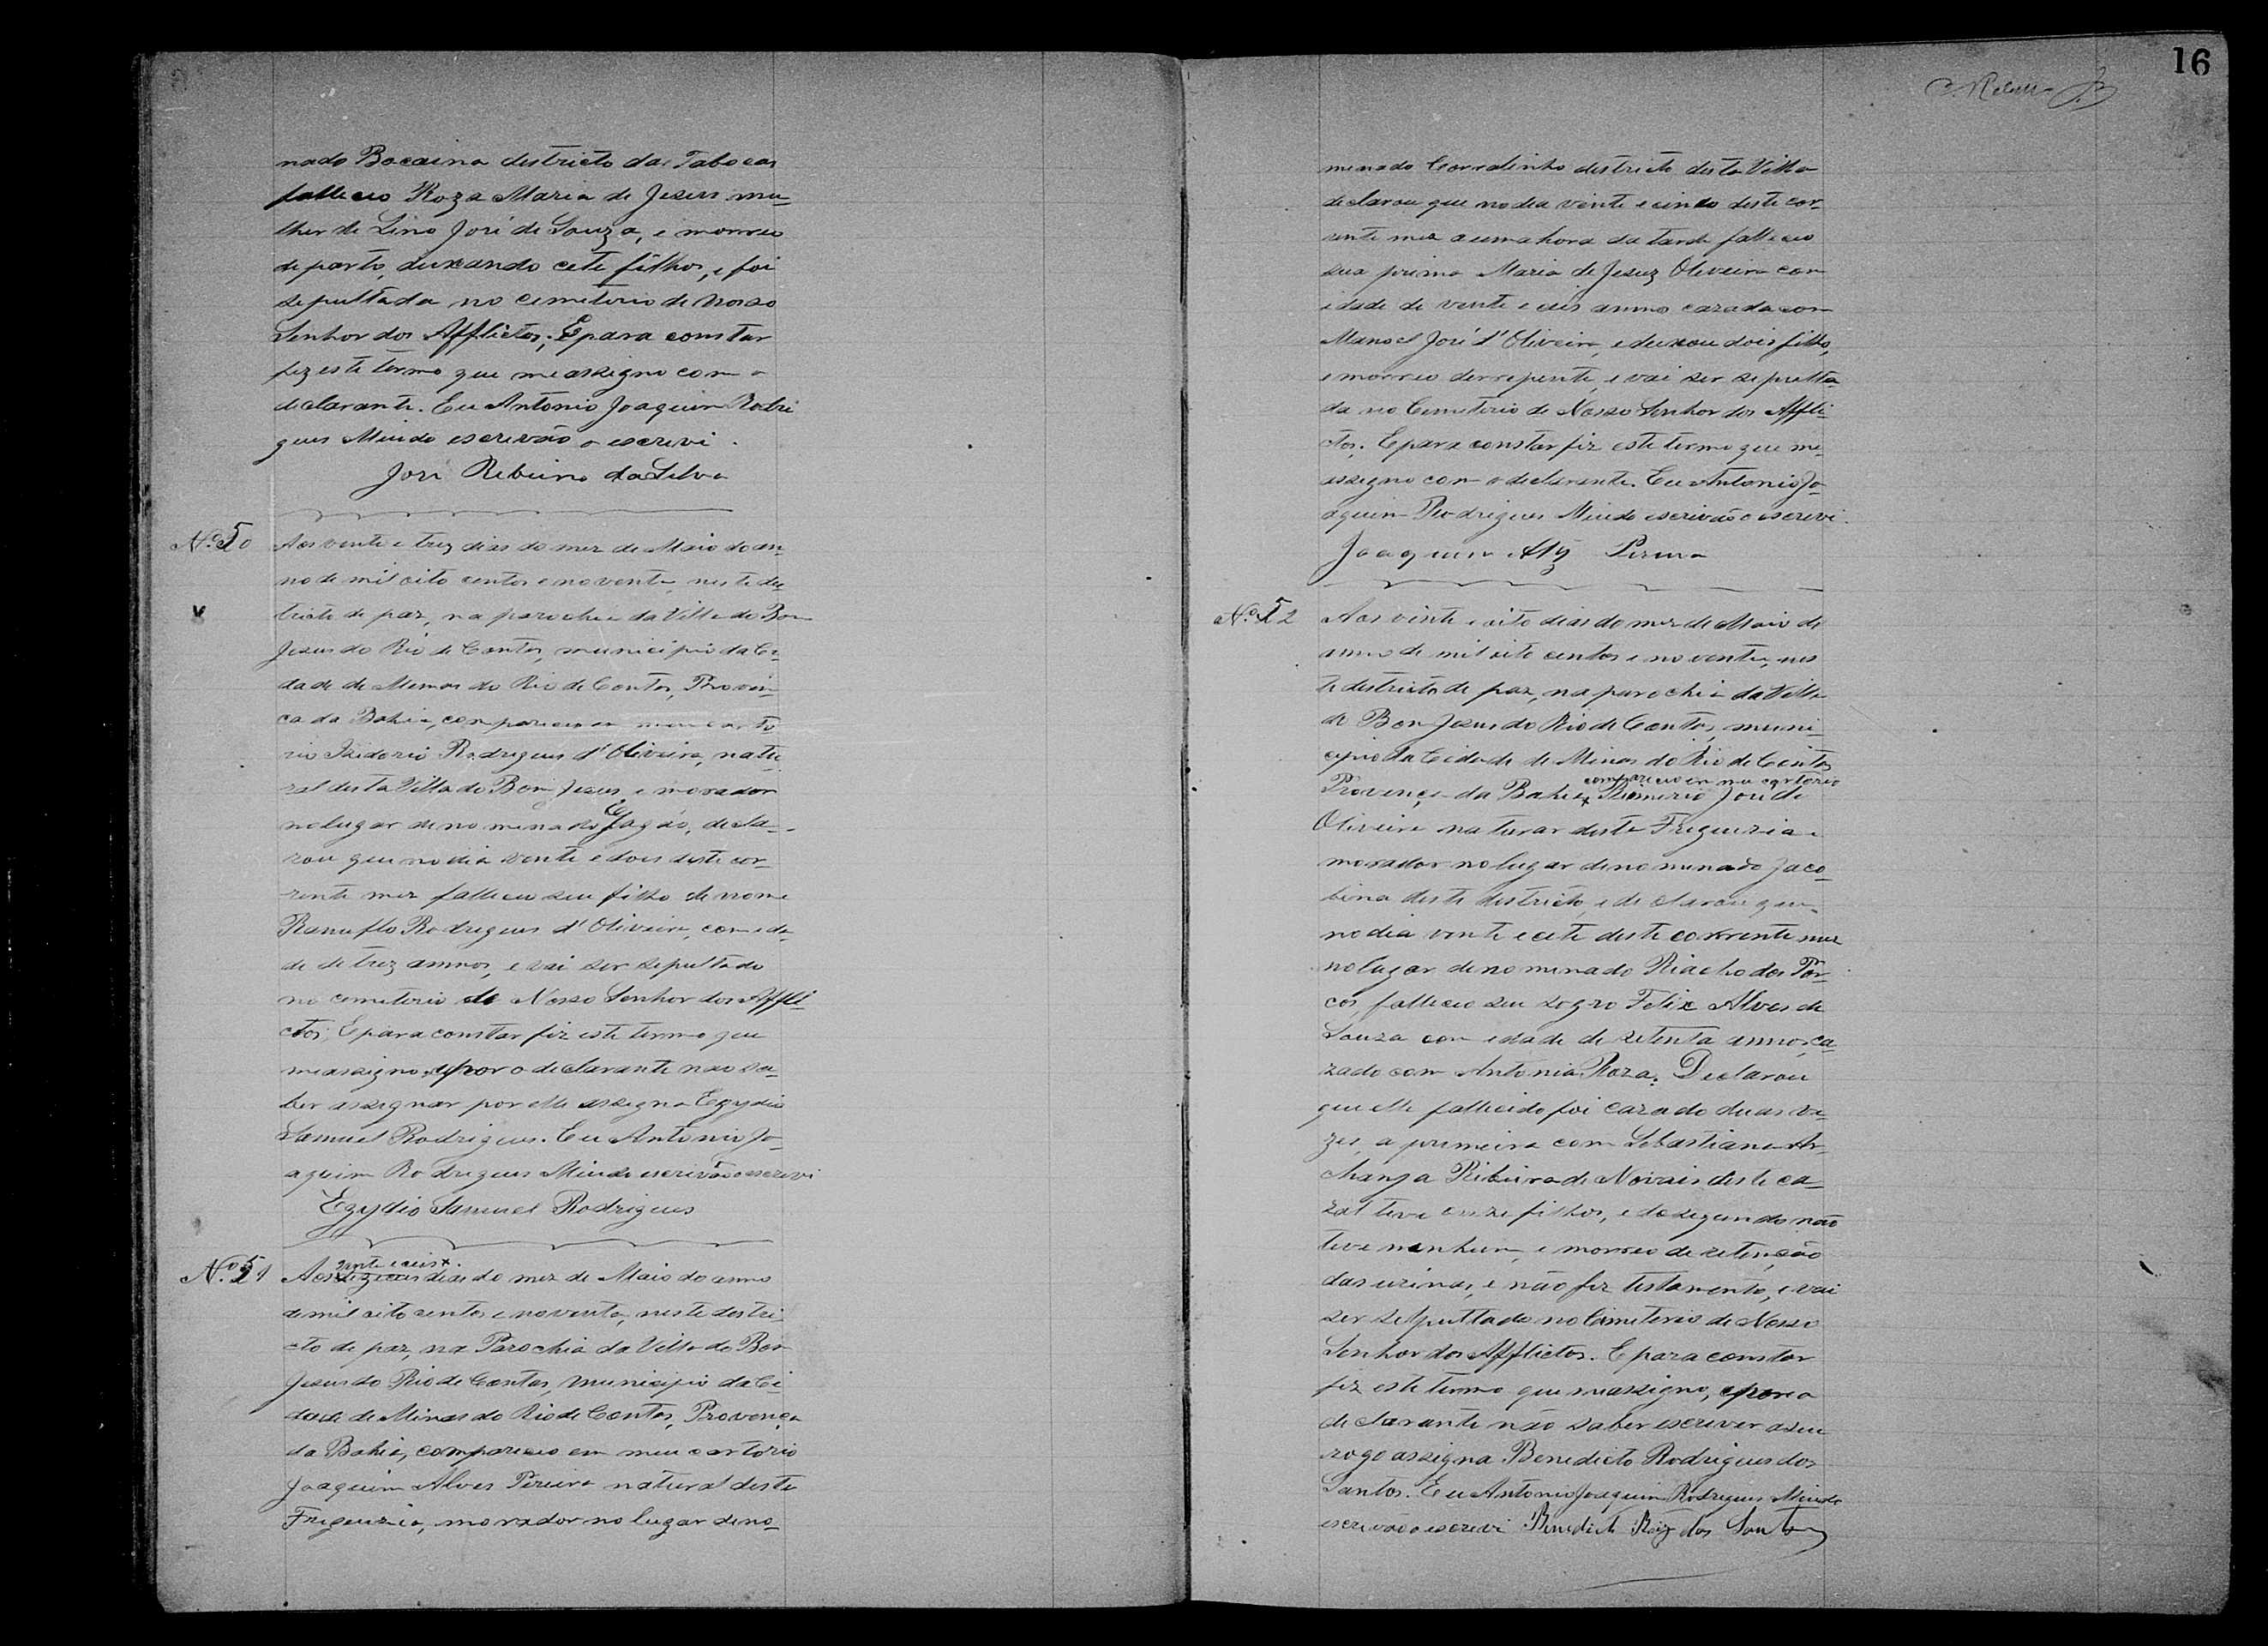 nado Bocaina destricto das Tabocas
falleceo Roza Maria de Jesus mu-
lher de Lino José de Souza, e morreo
de parto, deixando cete filhos, e foi
sepultada no cemeterio de Nosso
Senhor dos Afflictos; E para constar
fiz este termo que me assigno com o
declarante. Eu Antonio Joaquim Rodri
gues Miudo escrevão o escrevi.
José Ribeiro da Silva
No. 50
Aos vente e trez dias do mez de Maio do an-
no de mil oito centos e noventa, neste des-
tricto de paz, na parochia da Villa do Bom
Jesus do Rio de Contas, municipio da Ci-
dade de Menas do Rio de Contas, Proven-
ca da Bahia, compareceo em meu carto
rio Izidorio Rodrigues d'Oliveira, natu-
ral desta Villa do Bom Jesus e morador
no lugar denomenado, decla-
rou que no dia vente e dois deste cor-
rente mez falleceu seu filho de nome
Ranuflo Rodrigues d'Oliveira, com eda-
de de trez annos, e vai ser sepultado
no cemeterio de Nosso Senhor dos Affli-
ctos; E para constar fiz este termo que
me assigno, e por o declarante não sa-
ber assignar por elle assigna Egydio
Samuel Rodrigues. Eu Antonio Jo-
aquim Rodrigues Miudo escrivão o escrevi
Egydio Samuel Rodrigues
No. 51
vente e ceis x.
Aos dezeceis dias do mez de Maio do anno
de mil oito centos e noventa, neste destri-
cto de paz, na Parochia da Villa do Bom
Jesus do Rio de Contas, municipio da Ci-
dade de Minas do Rio de Contas, Provença
da Bahia, compareceo em meu cartorio
Joaquim Alves Pereira natural desta
Freguezia, morador no lugar deno-
16
menado Curralinho destricto desta Villa
declarou que no dia vente e cinco deste cor-
rente mez a uma hora da tarde falleceo
sua prima Maria de Jesuz Oliveira com
idade de vente e ceis annos cazada com
Manoel José d'Oliveira, e deixou dois filhos,
e morreo derrepente, e vai ser sepulta-
da no Cemeterio de Nosso Senhor dos Affli-
ctos. E para constar fiz este termo que me
assigno com o declarante. Eu Antonio Jo-
aquim Rodrigues Miudo escrivão o escrevi.
Joaquim Alz Perura
No. 52
Aos vinte e oito dias do mez de Maio do
anno de mil oito centos e noventa, nes
te destricto de paz, na parochia da Villa
do Bom Jesus do Rio de Contas, muni-
cipio da Cidade de Minas do Rio de Contas
compareceo em meu cartorio
Provença da Bahia x Rimerio José de
Oliveira naturar desta Freguezia e
morador no lugar denomenado Jaco-
bina deste destricto, e declarou que
no dia vente e cete deste corrente mez
no lugar denomenado Riacho dos Por-
cos, falleceo seu sogro Felix Alves de
Souza com edade de setenta annos, ca-
zado com Antonia Roza. Declarou
que elle fallecido foi cazado duas ve-
zes, a primeira com Sebastiana Ar-
changa Ribeira de Novais deste ca-
zal teve onze filhos, e do segundo não
teve nenhum, e morreo de retenção
das urinas, e não fez testamento, e vai
ser sepultado no Cimeterio de Nosso
Senhor dos Afflictos. E para constar
fiz este termo que me assigno, e por o
declarante não saber escrever a seu
rogo assigna Benedicto Rodrigues dos
Santos. Eu Antonio Joaquim Rodrigues Miudo
escrivão o escrevi Benedicto Roiz dos Santos